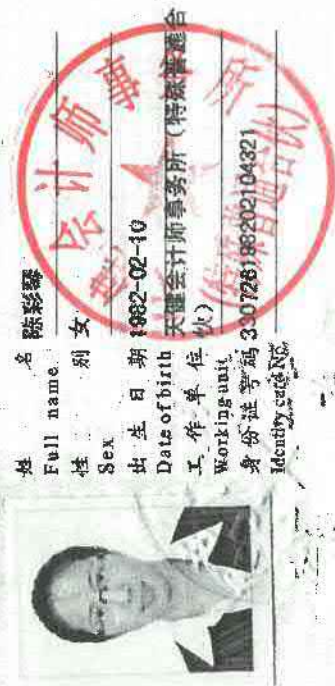 姓 名 陈彩琴
Full name
性 别 女
Sex
出 生 日 期 1982-02-10
Date of birth
工 作 单 位 天健会计师事务所（特殊普通合
Working unit 伙）
身份证号码 330726198202104321
Identity card No.
会计师事务所
（特殊普通合伙）